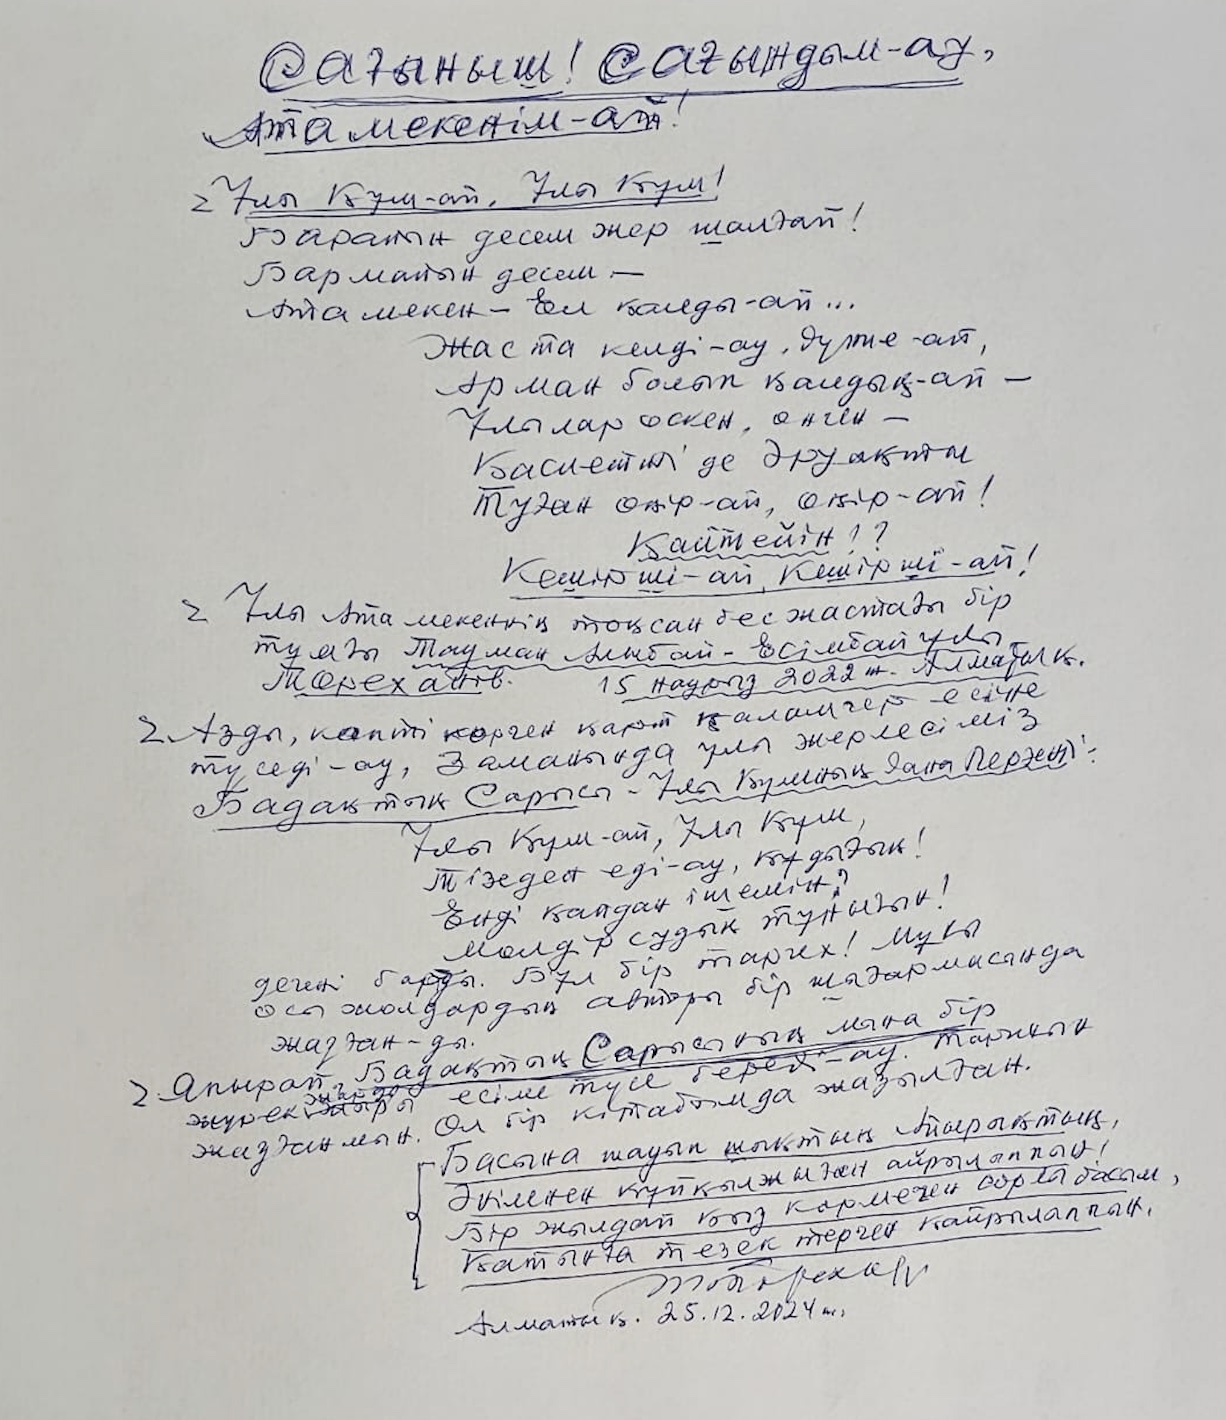 Сағыныш! Сағындым-ау,
Атамекенім-ай!
Ұлы Құм-ай, Ұлы Құм!
Барайын десем жер шалғай!
Бармайын десем —
Атамекен — Ел қалды-ай...
Жас та келді-ау, дүние-ай,
Арман болып қалдың-ай —
Ұлылар өскен, өнген —
Қасиетті де әруақты
Туған өңір-ай, өңір-ай!
Қайтейін!?
Кешірші-ай, Кешірші-ай!
Ұлы Атамекеннің тоқсан бес жастағы бір
тумаңы Тауман Алыбай-Есімбайұлы
Төреханов. 15 наурыз 2022 ж. Алматы қ.
Азды, көпті көрген қарт қаламгер есіне
түседі-ау, Заманында ұлы жерлесіміз
Бадақтың Сарысы - Ұлы Құмның дана Перзенті:
Ұлы Құм-ай, Ұлы Құм,
Тізеден еді-ау, құдығың!
Енді қайдан ішемін?
Мөлдір судың тұнығын!
дегені барды. Бұл бір тарих! Мұны
осы жолдардың авторы бір шығармасында
жазған-ды.
Апырай, Бадақтың Сарысының мына бір
жүрек жыры есіме түсе береді-ау. Тарихын
жазғанмын. Ол бір кітабымда жазылған.
Басына шауып шықтың Айырықтың,
Әкімнен құйқылжыған айрылаппын!
Бір жылдай қыз көрмеген сорлы басым,
Қатынға тезек терген қайрылаппын.
Алматы қ. 25.12.2024 ж.